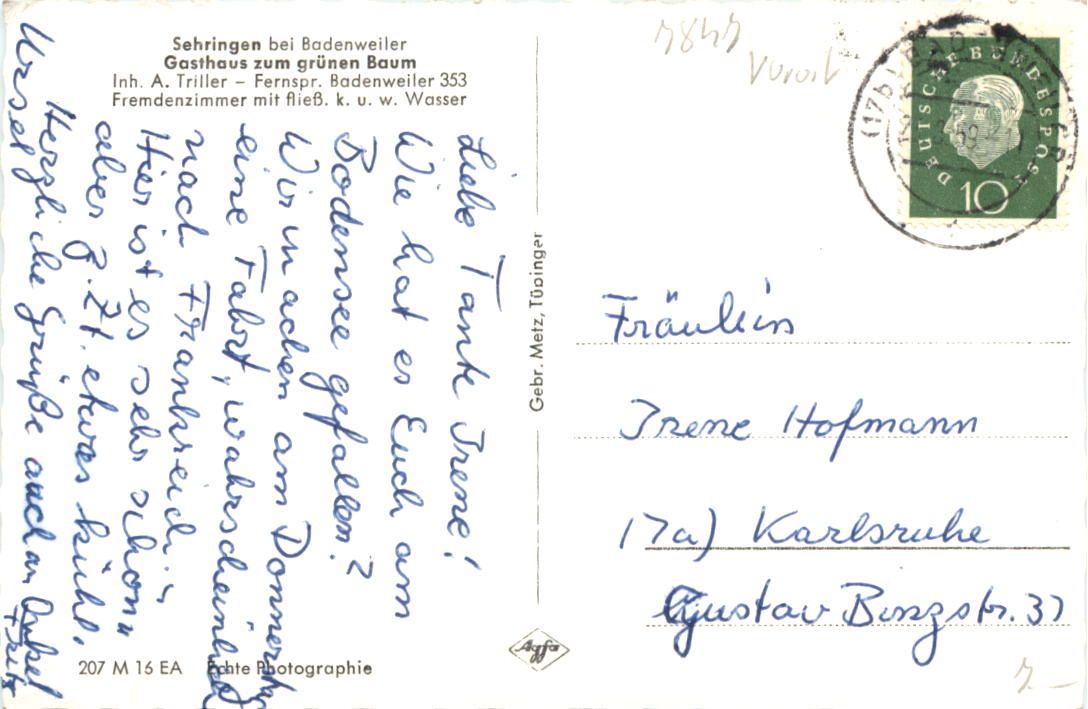 Sehringen bei Badenweiler
Gasthaus zum grünen Baum
Inh. A. Triller – Fernspr. Badenweiler 353
Fremdenzimmer mit fließ. k. u. w. Wasser
Liebe Tante Irene!
Wie hat es Euch am
Bodensee gefallen?
Wir machen am Donnerstag
eine Fahrt, wahrscheinlich
nach Frankreich.
Hier ist es sehr schön,
aber z. Zt. etwas kühl.
Herzliche Grüße auch an Onkel
Fritz
Ursel
207 M 16 EA Echte Photographie
Gebr. Metz, Tübingen
Agfa
7847
Vorort
(17b)
59
DEUTSCHE BUNDESPOST
10
Fräulein
Irene Hofmann
17a) Karlsruhe
Gustav Binzstr. 37